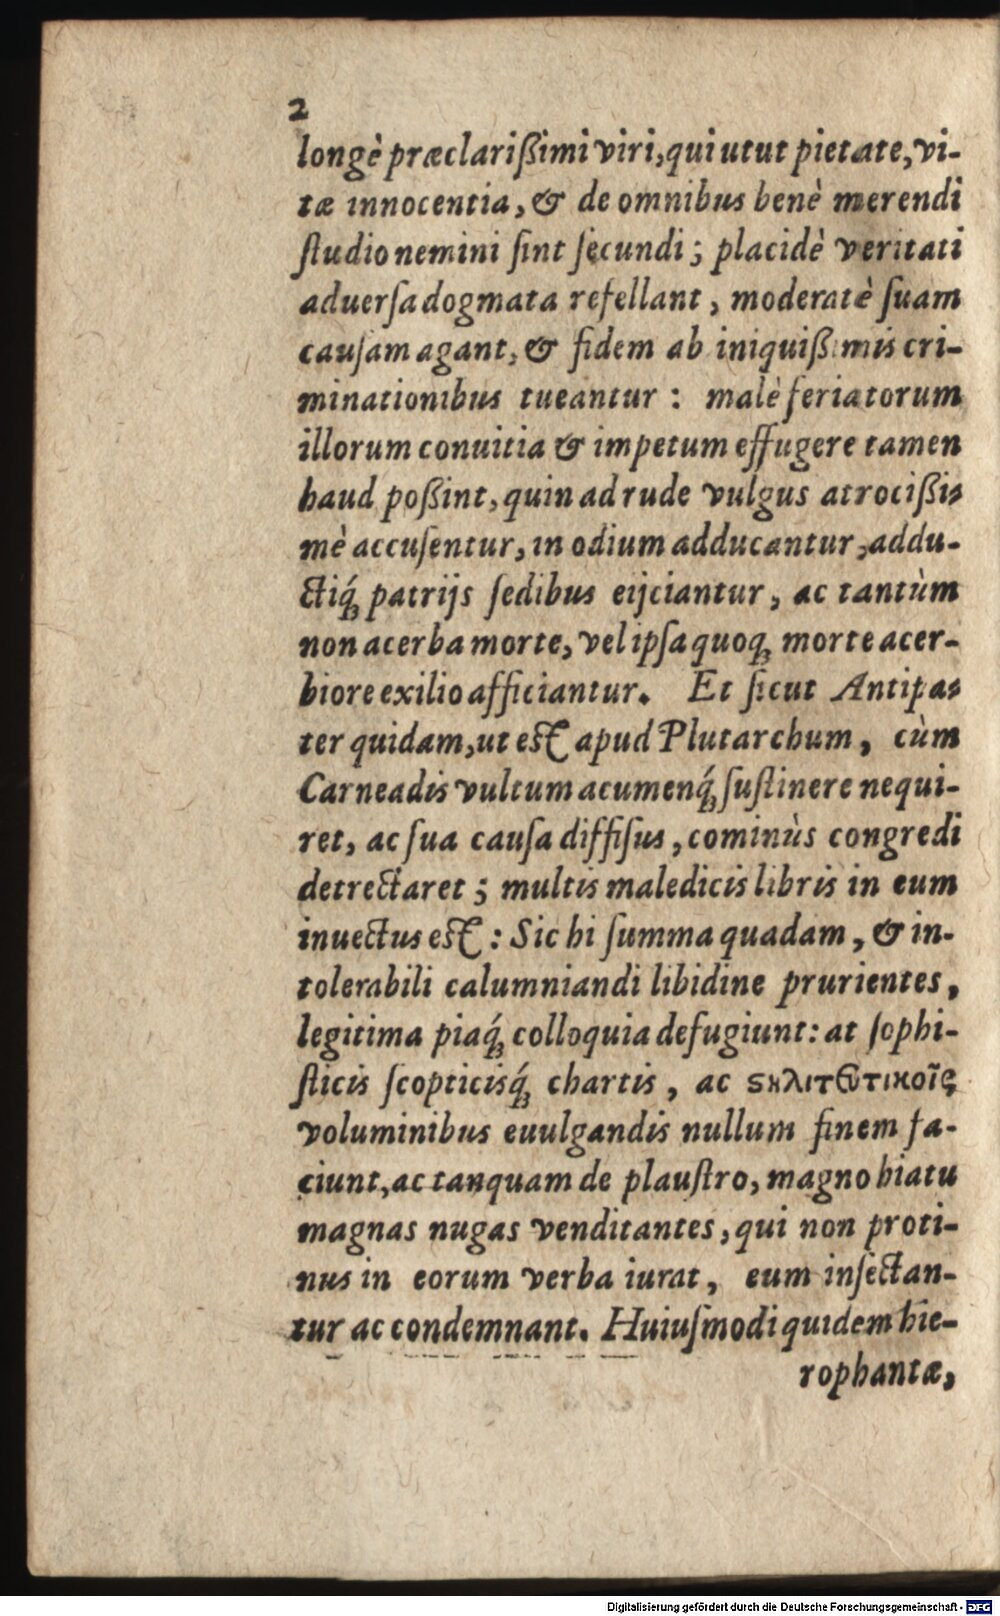 2
longè præclarißimi viri, qui utut pietate, vi-
tæ innocentia, & de omnibus benè merendi
ſtudio nemini ſint ſecundi; placidè veritati
aduerſa dogmata refellant, moderatè ſuam
cauſam agant, & fidem ab iniquißimis cri-
minationibus tueantur: malè feriatorum
illorum conuitia & impetum effugere tamen
haud poßint, quin ad rude vulgus atrocißi-
mè accuſentur, in odium adducantur, addu-
ctiq́ꝫ patrijs ſedibus eijciantur, ac tantùm
non acerba morte, vel ipſa quoqꝫ morte acer-
biore exilio afficiantur. Et ſicut Antipa-
ter quidam, ut est apud Plutarchum, cùm
Carneadis vultum acumenq́ꝫ ſuſtinere nequi-
ret, ac ſua cauſa diffiſus, cominùs congredi
detrectaret; multis maledicis libris in eum
inuectus est: Sic hi ſumma quadam, & in-
tolerabili calumniandi libidine prurientes,
legitima piaq́ꝫ colloquia defugiunt: at ſophi-
ſticis ſcopticisq́ꝫ chartis, ac ϛηλιτευτικοῖς
voluminibus euulgandis nullum finem fa-
ciunt, ac tanquam de plauſtro, magno hiatu
magnas nugas venditantes, qui non proti-
nus in eorum verba iurat, eum inſectan-
tur ac condemnant. Huiuſmodi quidem hie-
rophantæ,
Digitalisierung gefördert durch die Deutsche Forschungsgemeinschaft - DFG